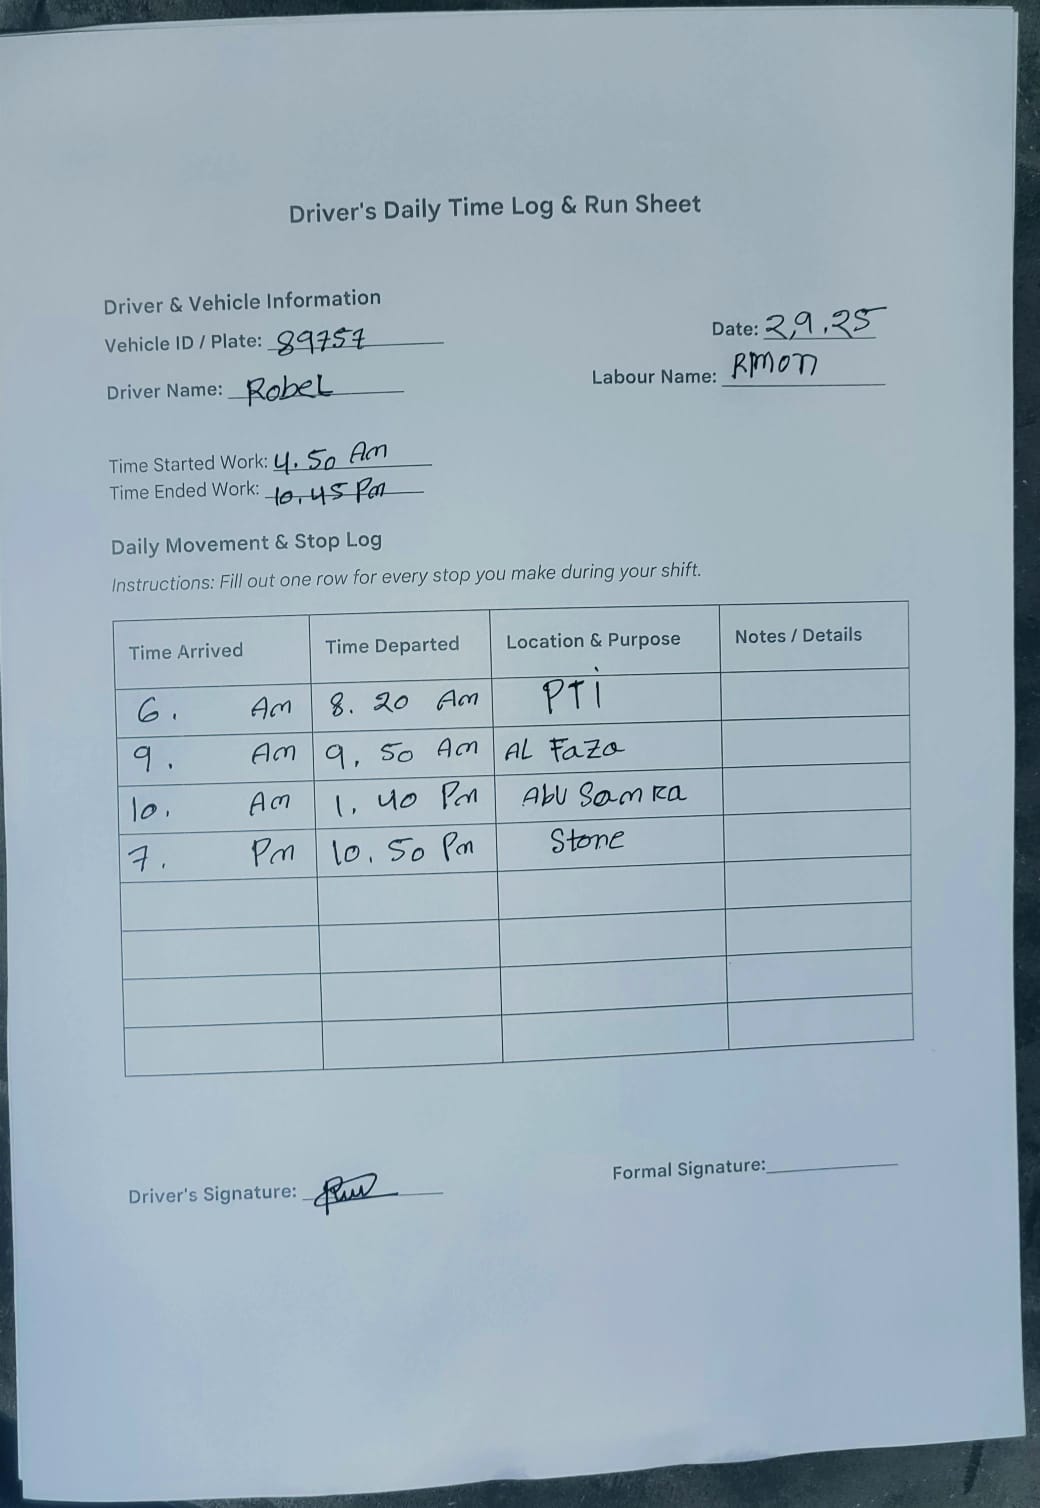 Driver's Daily Time Log & Run Sheet
Driver & Vehicle Information
Vehicle ID / Plate: 89757
Date: 2,9,25
Driver Name: Robel
Labour Name: RMON
Time Started Work: 4.50 Am
Time Ended Work: 10.45 Pm
Daily Movement & Stop Log
Instructions: Fill out one row for every stop you make during your shift.
Time Arrived Time Departed Location & Purpose Notes / Details
6. Am 8.20 Am PTi
9. Am 9,50 Am AL Faza
10. Am 1.40 Pm Abu Samra
7. Pm 10.50 Pm Stone
Formal Signature:
Driver's Signature: